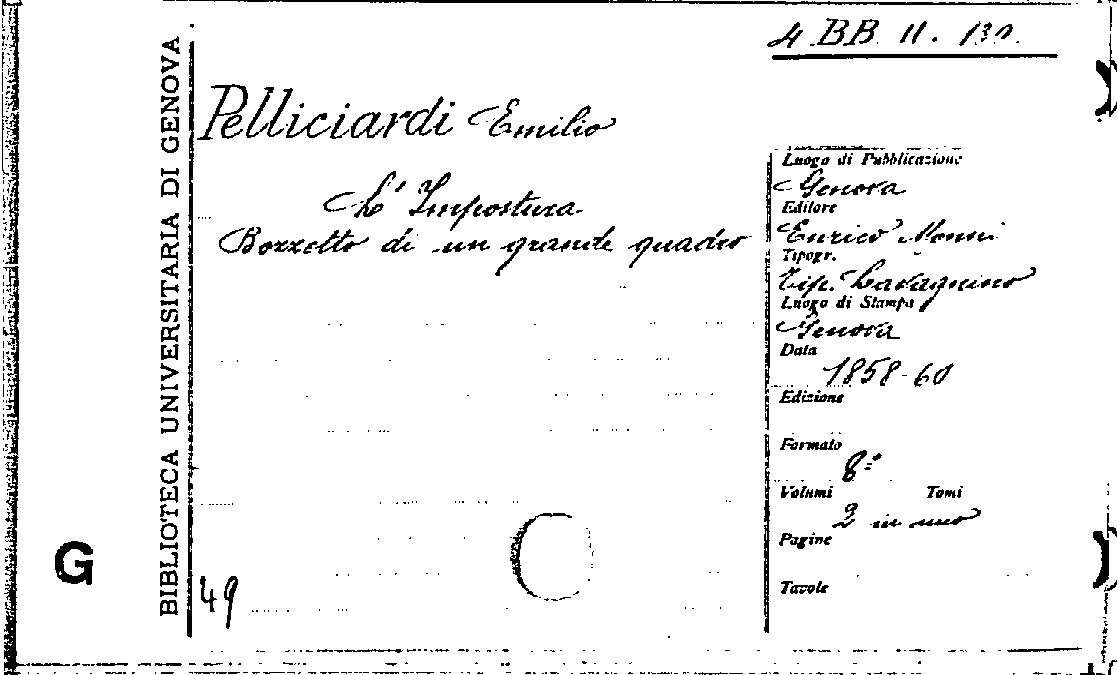 4 BB II. 130.
Pelliciardi Emilio
L'Impostura
Bozzetto di un grande quadro
Luogo di Pubblicazione
Genova
Editore
Enrico Monni
Tipogr.
Tip. Lavagnino
Luogo di Stampa
Genova
Data
1858-60
Edizione
Formato
8º
Volumi Tomi
2 in uno
Pagine
Tavole
BIBLIOTECA UNIVERSITARIA DI GENOVA
G
49